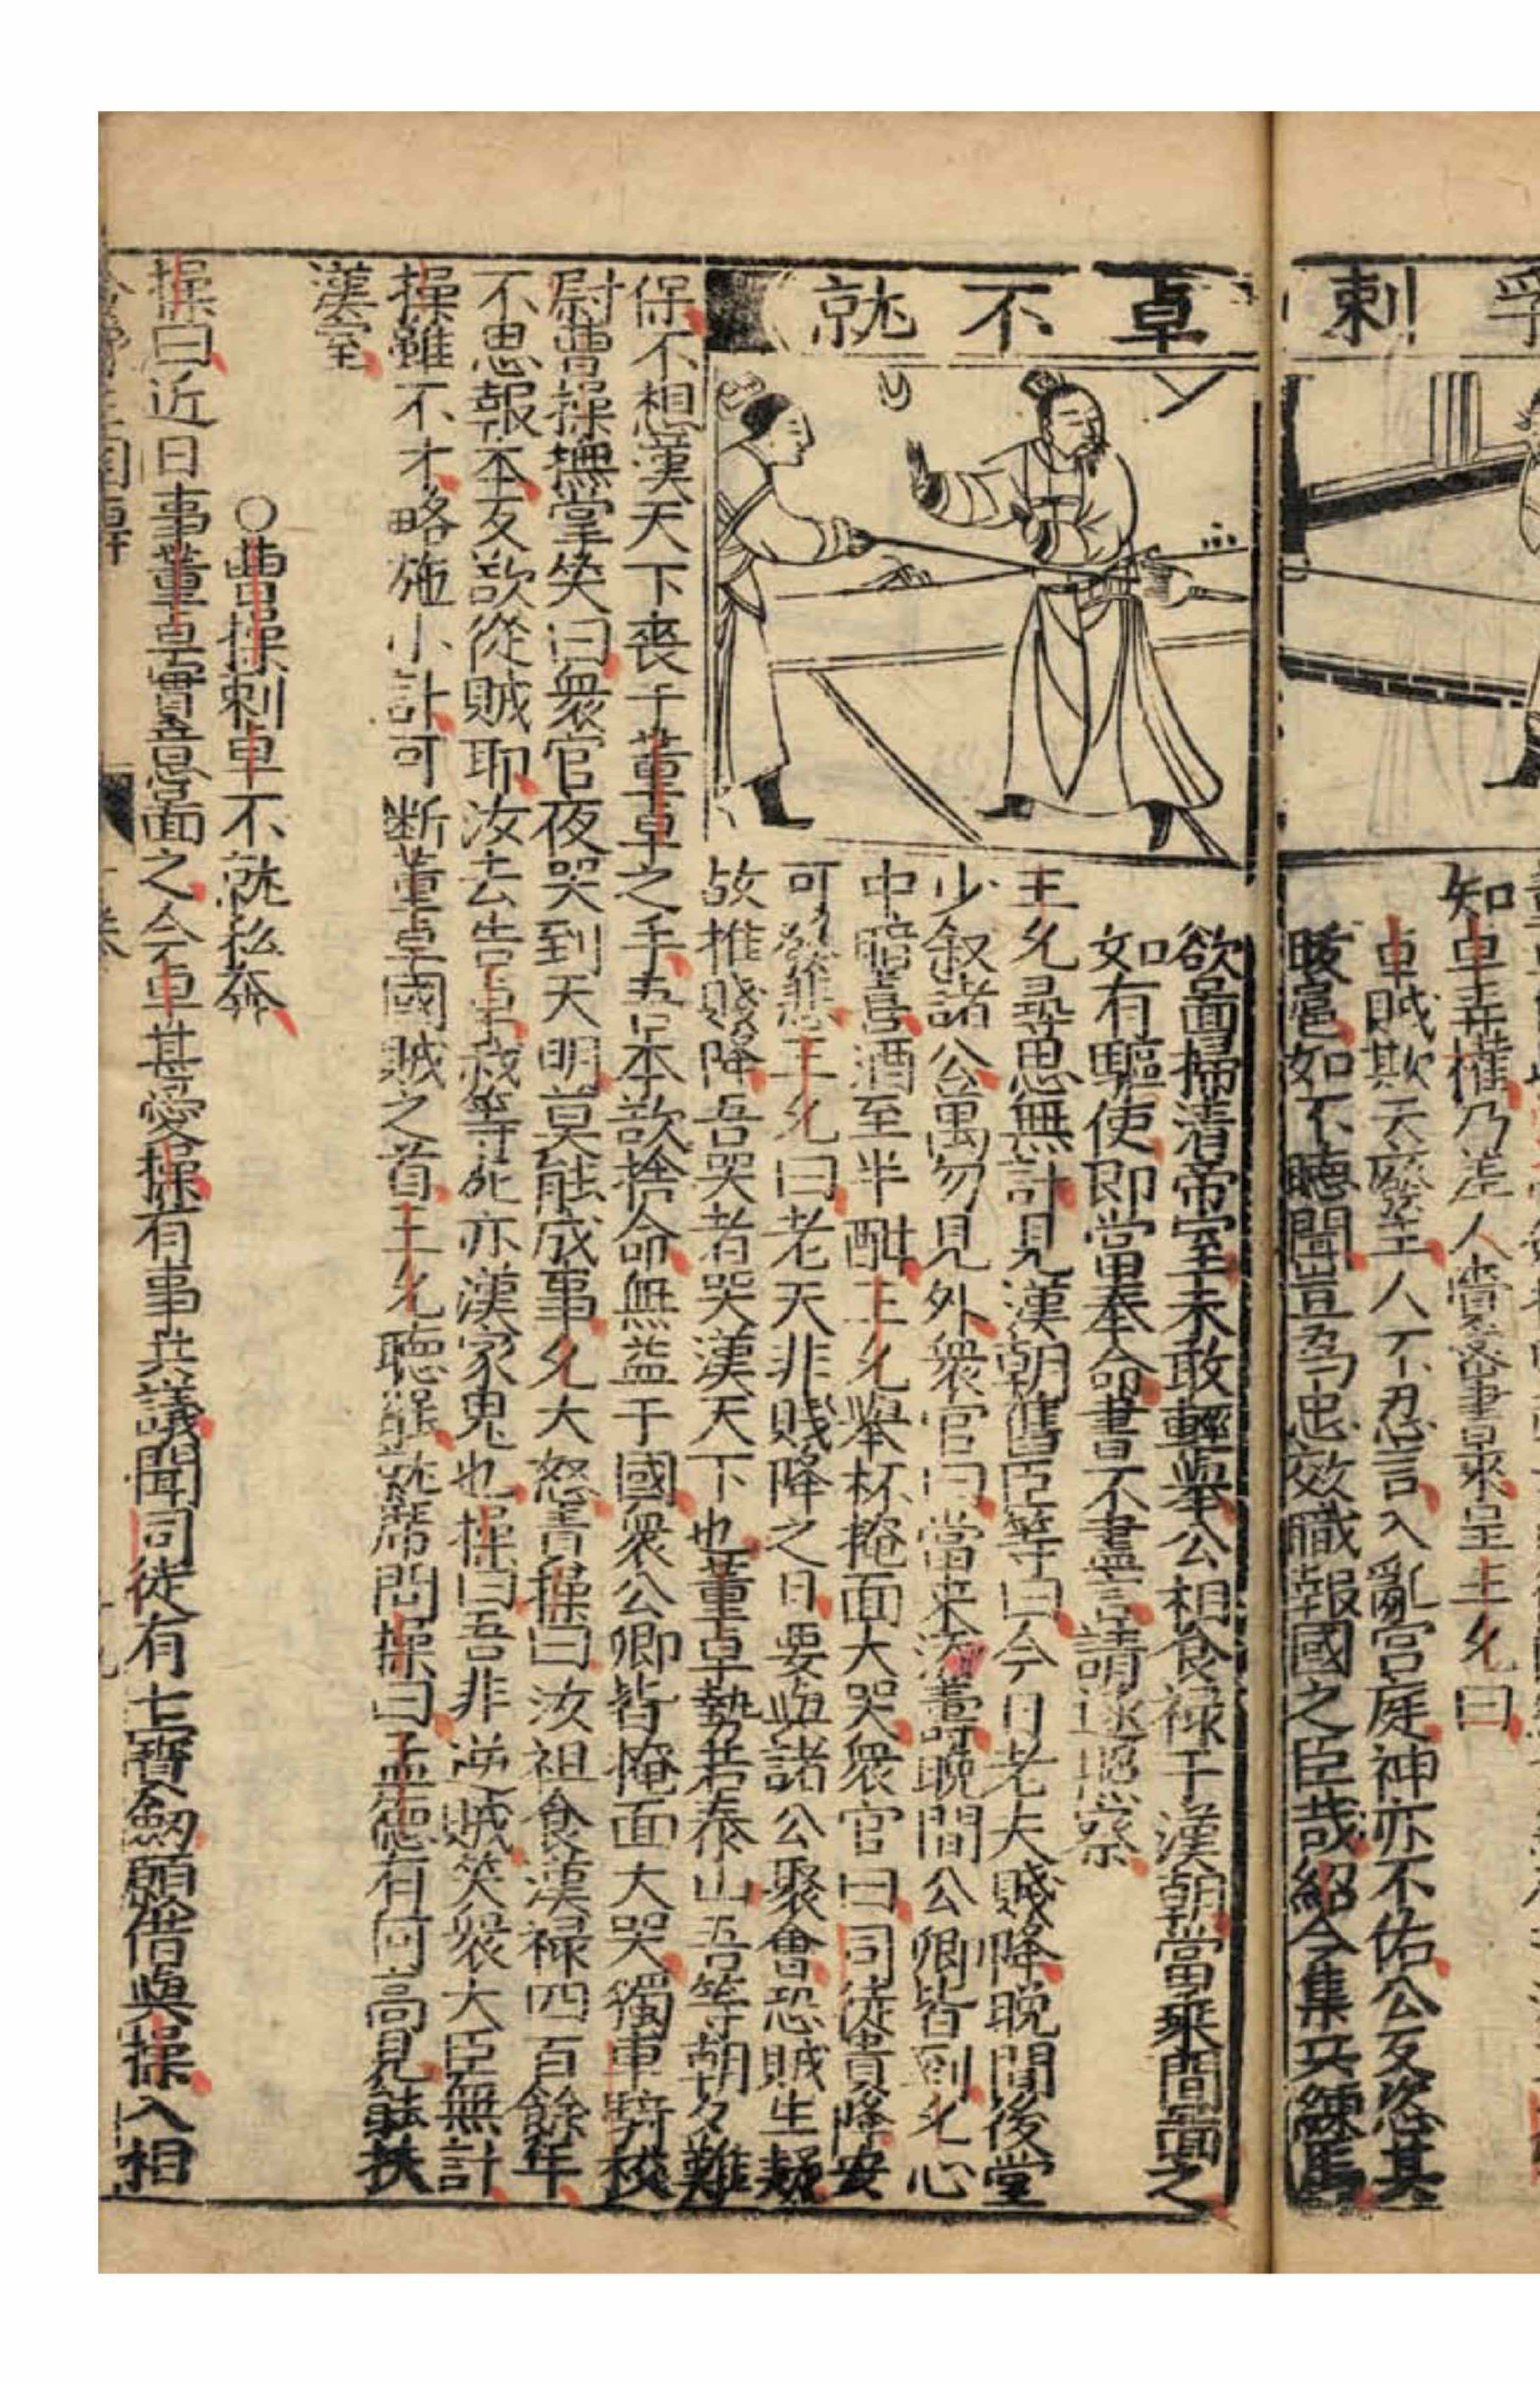 乎刺
卓不就
知卓弄權乃差人齎密書來呈王允曰
卓賊欺天廢主人不忍言入亂宮庭神亦不佑公反恣其
跋扈如不聽聞豈為忠效職報國之臣哉紹今集兵練馬
欲啚掃清帝室未敢輕舉公相食禄于漢朝當乘間啚之
如有驅使即當奉命書不盡言請逐照察
王允尋思無計見漢朝舊臣等曰今日老夫賤降晚間後堂
少叙諸公萬勿見外衆官曰當來添壽晚間公卿皆到允心
中暗喜酒至半酣王允舉杯掩面大哭衆官曰司徒貴降安
可發悲王允曰老天非賤降之日要與諸公聚會恐賊生疑
故推賤降吾哭者哭漢天下也董卓勢若泰山吾等朝夕難
保不想漢天下喪于董卓之手吾本欲捨命無益于國衆公卿皆掩面大哭獨車騎校
尉曹操撫掌笑曰衆官夜哭到天明莫能成事允大怒責操曰汝祖食漢禄四百餘年
不思報本反欲從賊耶汝去告卓殺等死亦漢家鬼也操曰吾非逆賊笑衆大臣無計
操雖不才略施小計可断董卓國賊之首王允聽罷就席問操曰孟德有何高見能扶
漢室
○曹操刺卓不就私奔
操曰近日事董卓實意啚之今卓甚愛操有事共議聞司徒有七寶劔願借與操入相